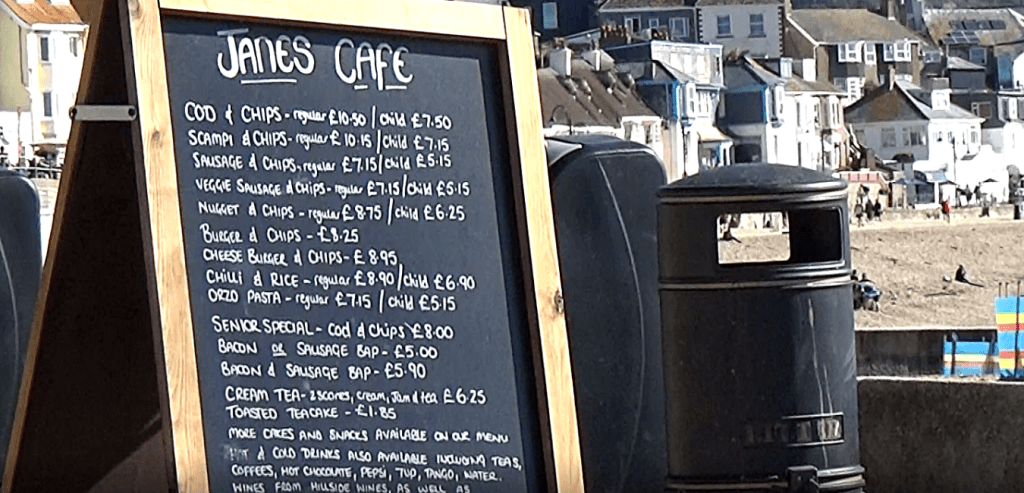 JANES CAFE
COD & CHIPS - regular £10.50 / child £7.50
SCAMPI & CHIPS - regular £10.15 / child £7.15
SAUSAGE & CHIPS - regular £7.15 / child £5.15
VEGGIE SAUSAGE & CHIPS - regular £7.15 / child £5.15
NUGGET & CHIPS - regular £8.75 / child £6.25
BURGER & CHIPS - £8.25
CHEESE BURGER & CHIPS - £8.95
CHILLI & RICE - regular £8.90 / child £6.90
ORZO PASTA - regular £7.15 / child £5.15
SENIOR SPECIAL - Cod & Chips £8.00
BACON OR SAUSAGE BAP - £5.00
BACON & SAUSAGE BAP - £5.90
CREAM TEA - 2 scones, cream, Jam & tea £6.25
TOASTED TEACAKE - £1.85
MORE CAKES AND SNACKS AVAILABLE ON OUR MENU
HOT & COLD DRINKS ALSO AVAILABLE INCLUDING TEAS,
COFFEES, HOT CHOCOLATE, PEPSI, 7UP, TANGO, WATER.
WINES FROM HILLSIDE WINES, AS WELL AS